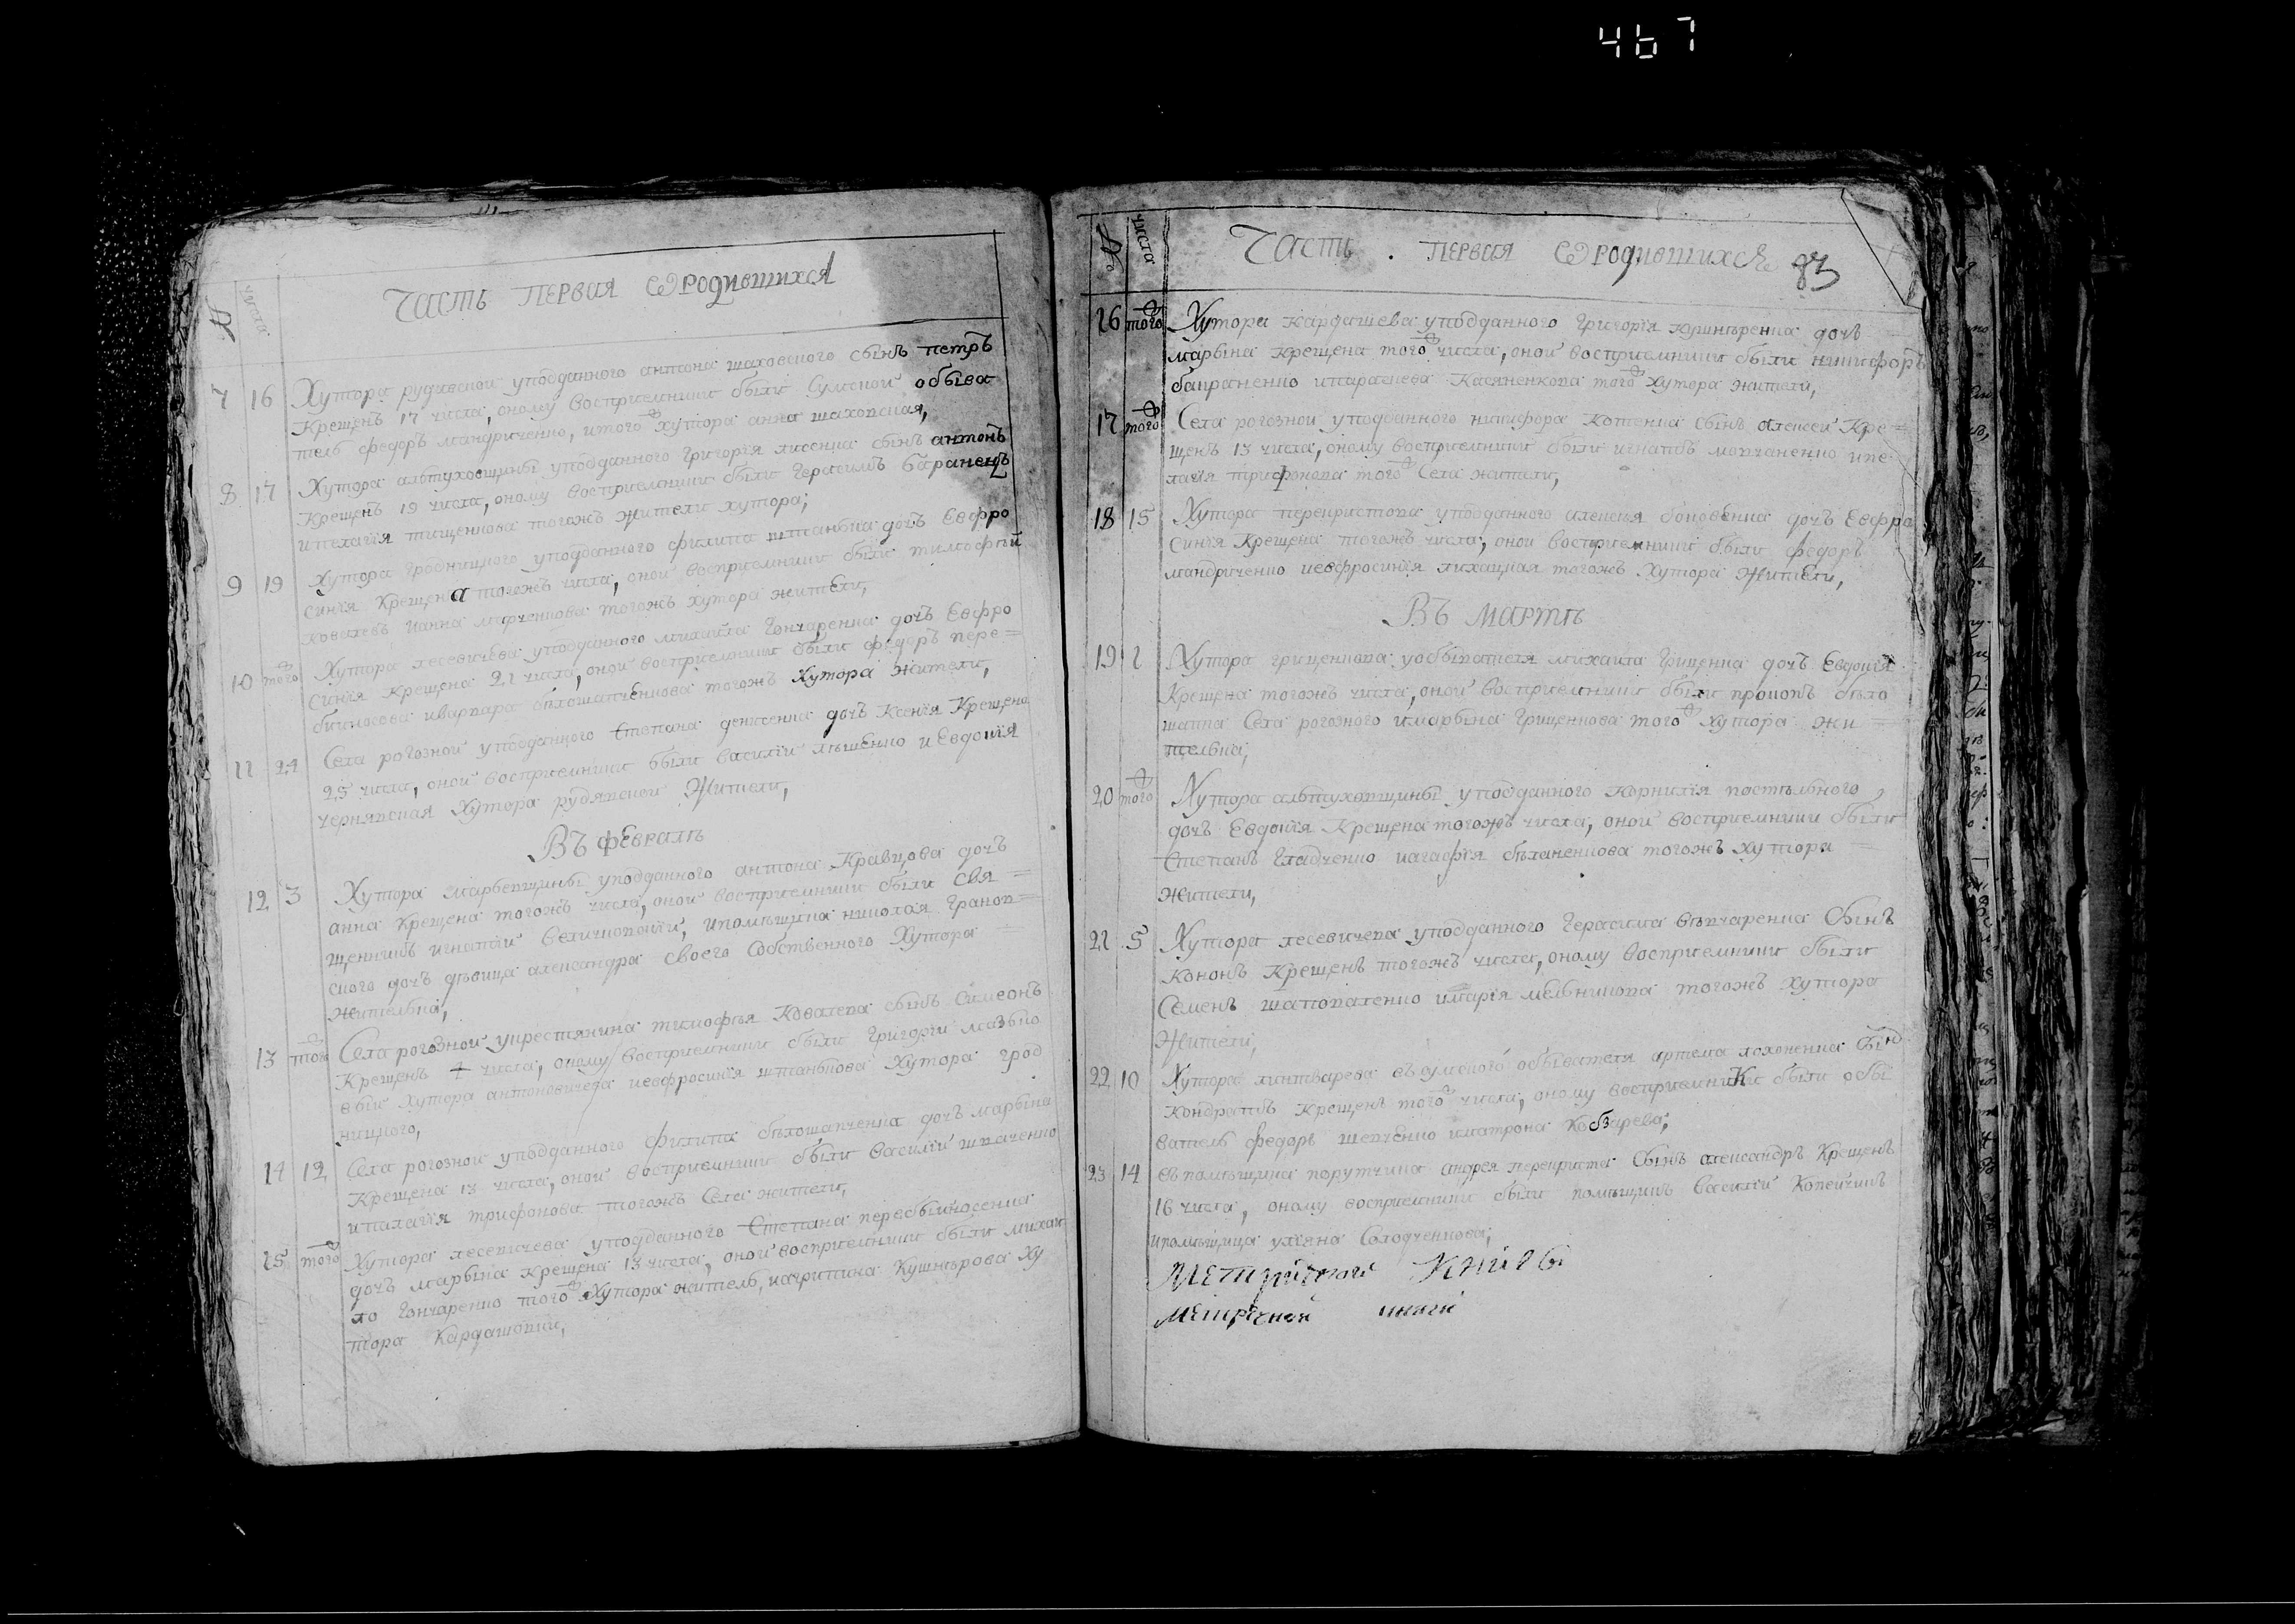 467
Часть первая ѿродившихся
№ числа
7 16 Хутора рудивской уподданного антона шаховского сынъ петръ
Крещенъ 17 числа, оному восприемники были Сумской обыва
тель федоръ мандриченко, итогож хутора анна шаховская,
8 17 Хутора алтуховщины уподданного григорія лисенка сынъ антонъ
Крещенъ 19 числа, оному восприемники были герасимъ баранецъ
ипелагія тищенкова тогожъ жители хутора;
9 19 Хутора гробницкого уподданного филипа штанька дочъ Евфро
синія Крещена тогожъ числа, оной восприемники были тимофѣй
ковалевъ ианна марченкова тогожъ хутора жители,
10 тогож Хутора лесевичева уподданного михаила гончаренка дочъ Евфро
синія крещена 21 числа, оной восприемники были федоръ пере=
биносова иварвара бѣлошапченкова тогожъ хутора жители,
11 24 Села рогозной уподданного степана денисенка дочъ Ксенія Крещена
25 числа, оной восприемники были василій ляшенко иЕвдокія
чернявская Хутора рудявской Жители,
Въ февралѣ
12 3 Хутора марьевщины уподданного антона Кравцова дочъ
анна Крещена тогожъ числа, оной восприемники были свя=
щенникъ игнатій величковскій, ипомѣщика николая
ского дочъ дѣвица александра своего собственного Хутора =
Жителька,
13 тогож Села рогозной украстянина тимофѣя Ковалева сынъ Симеонъ
Крещенъ 4 числа, оному восприемники были григорій мазько
евъ Хутора антоновичева иевфросинія штанькова Хутора гроб
ницкого,
14 12 Села рогозной уподданного филипа бѣлошапченка дочъ марьяна
Крещена 13 числа, оной восприемники были василій шпаченко
ипалагія трифонова тогожъ Села жители,
15 тогож Хутора лесевичева уподданного Степана перебійносенка
дочъ марьина крещена 13 числа, оной восприемники были михаи
ло гончаренко тогож Хутора житель, иагрипина Кушнѣрова Ху
тора Кардашовки,
№ числа
Часть . первая ѿродившихся 83
16 тогож Хутора кардашева уподданного григорія кушнѣренка дочъ =
марьина крещена тогож числа, оной восприемники были никифоръ
ипараскева Касяненкова тогож хутора жители,
17 тогож Села рогозной уподданного никифора Котенка сынъ алексей Кре=
щенъ 13 числа, оному восприемники были игнатъ молчаненко ипе
лагія трифонова тогож Села жители,
18 15 Хутора перекристова уподданного алексѣя боковенка дочъ Евфро
синія Крещена тогожъ числа, оной восприемники были федоръ
мандриченко иевфросинія лихацкая тогожъ Хутора Жители,
Въ мартѣ
19 1 Хутора гриценкова уобывателя михаила Гриценка дочъ Евдокія
Крещена тогожъ числа, оной восприемники были прокопъ бѣло
шапка Села рогозного имарьина Гриценкова тогож хутора жи=
телька;
20 тогож Хутора алтуховщины уподданного корнилія постольного
дочъ Евдокія Крещена тогожъ числа, оной восприемники были
Степанъ Гладченко иагафія бѣланенкова тогожъ хутора =
жители,
21 5 Хутора лесевичева уподданного Герасима Сынъ
кононъ Крещенъ тогожъ числа, оному восприемники были
Семенъ шаповаленко имарія мельникова тогожъ хутора
Жители,
22 10 Хутора линтварева въсумского обывателя артема Сынъ
кондратъ Крещенъ тогож числа, оному восприемники были обы
ватель федоръ шевченко иматрона Кобзарева;
23 14 въпомѣщика порутчика андрея перекриста Сынъ александръ Крещенъ
16 числа, оному восприемники были помѣщикъ василій Копейчикъ
ипомѣщица уліяна Солодченкова;
Метрической Книгы
метричной книги